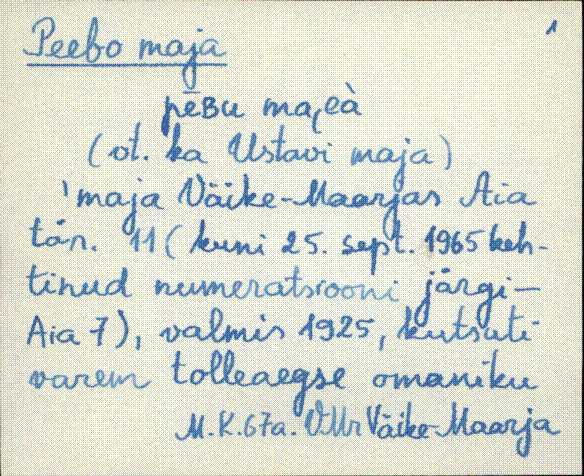 Peebo maja 1
pēʙu ma͔eà
(vt. ka Ustavi maja)
'maja Väike-Maarjas Aia
tän. 11 (kuni 25. sept. 1965 keh-
tinud numeratsiooni järgi -
Aia 7), valmis 1925, kutsuti
varem tolleaegse omaniku
M.K.67a. VMr Väike-Maarja